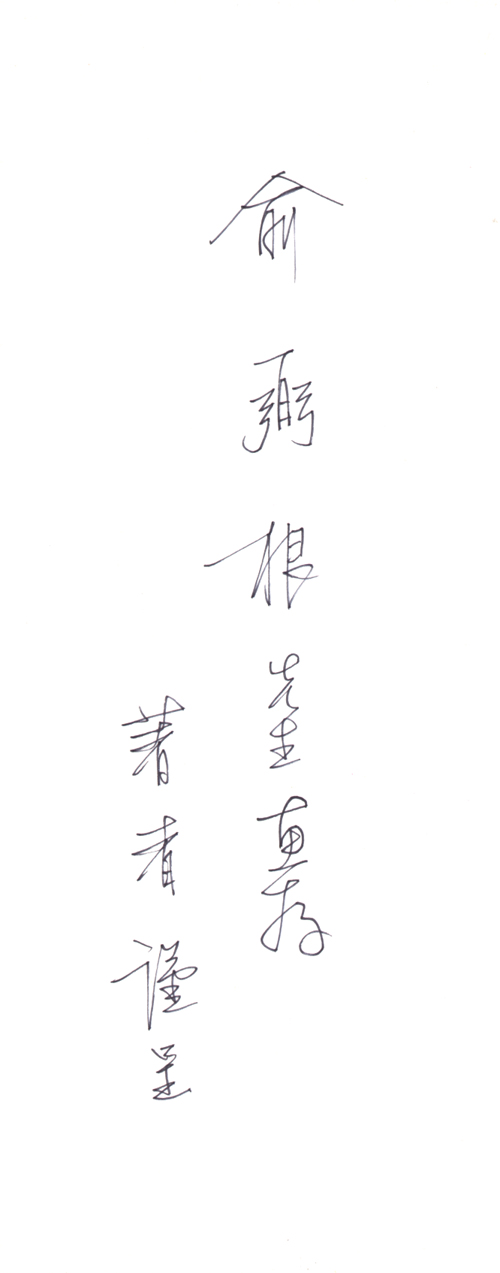 俞弼根先生惠存
著者謹呈